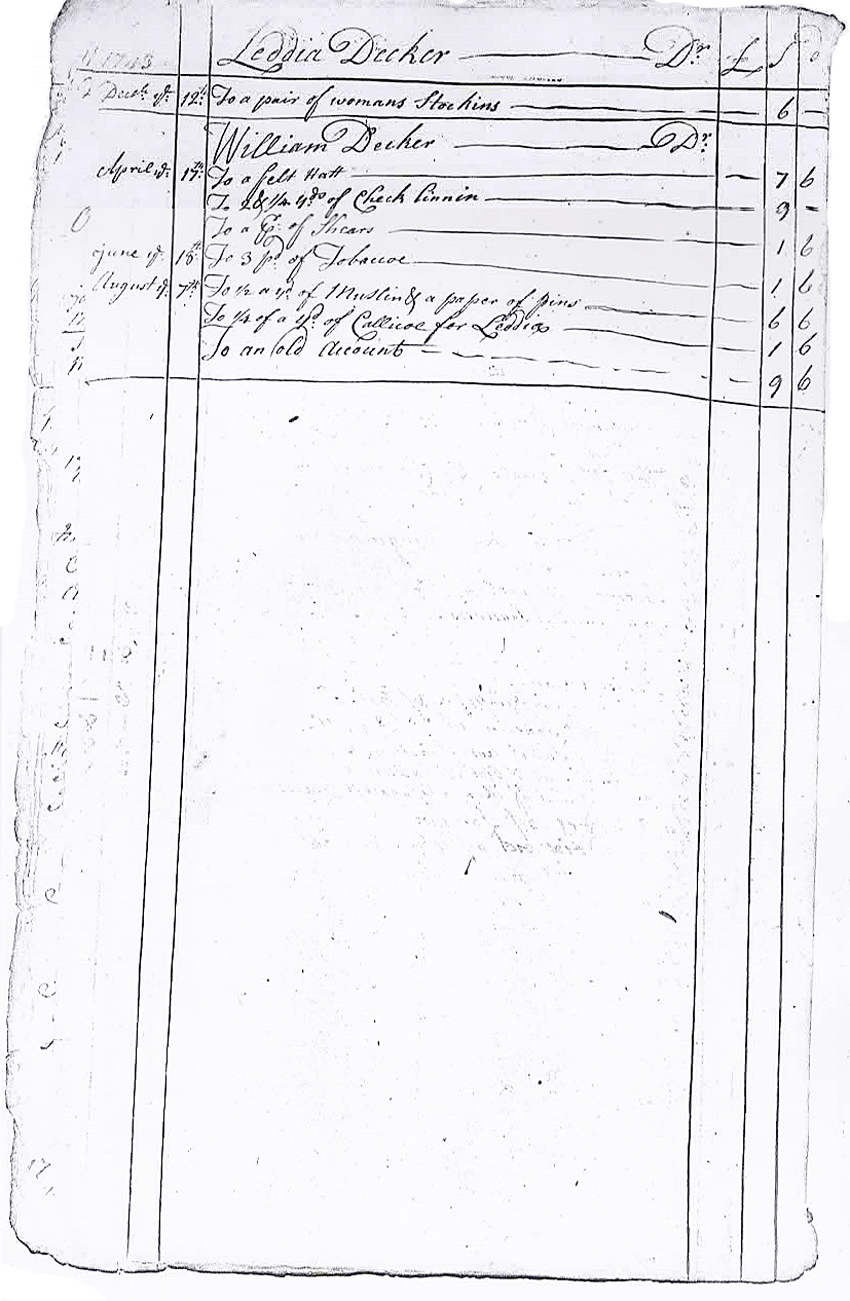 1743 Leddia Decker — Dr £ S D
Decbr ye 12th To a pair of womans Stockins — 6 —
William Decker — Dr
April ye 17th To a felt Hatt — 7 6
To 2 & 1/4 yds of Check linnin — 9 -
To a pr of Shears — 1 6
June ye 18th To 3 pd of Tobaccoe — 1 6
August ye 7th To 1/2 a yd of Muslin & a paper of pins — 6 6
To 1/4 of a yd of Callicoe for Leddia — 1 6
To an old Account — 9 6